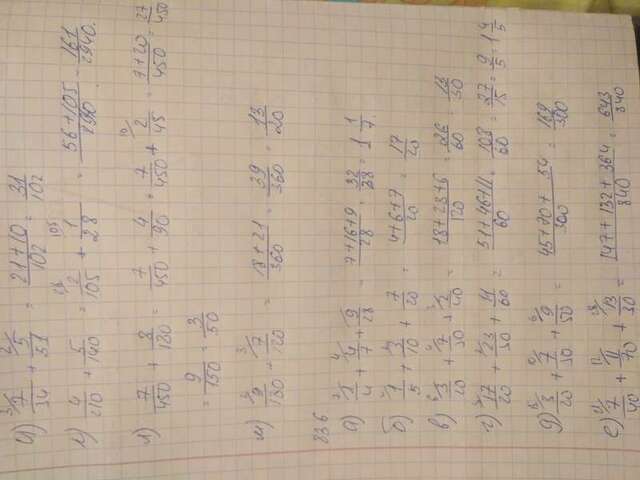 и) 7/34 + 5/51 = 21+10/102 = 31/102
4/210 + 5/140 = 2/105 + 1/28 = 56+105 161/2940
л) 7/450 + 8/180 = 7/450 + 4/90 = 7/450 + 2/45 = 7+20/450 = 27/450
= 9/150 = 3/50
м) 9/180 + 7/120 = 18+21/360 = 39/360 = 13/20
836
а) 1/4 + 4/7 + 9/28 = 7+6+9/28 = 32/28 = 1 1/7
б) 1/5 + 3/10 + 7/20 = 4+6+7/20 = 17/20
в) 3/20 + 7/30 + 1/40 = 18+28+6/120 = 26/60 = 13/30
г) 17/20 + 23/30 + 11/60 = 51+46+11/60 = 108/60 = 27/15 = 9/5 = 1 4/5
д) 3/20 + 7/30 + 9/50 = 45+70+54/300 = 169/300
е) 7/40 + 11/70 + 13/30 = 147+132+364/840 = 643/840